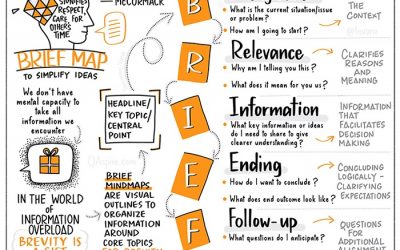 McCORMACK
SIGNIFIES
RESPECT,
CARE FOR
OTHER'S
TIME
BRIEF MAP
TO SIMPLIFY IDEAS
We don't have
mental capacity to
take all
information we
encounter
IN THE WORLD
OF
INFORMATION
OVERLOAD
BREVITY IS
HEADLINE/
KEY TOPIC/
CENTRAL
POINT
QAspire.com
BRIEF
MINDMAPS
ARE VISUAL
OUTLINES TO
ORGANIZE
INFORMATION
AROUND
CORE TOPICS
B
R
I
E
F
What is the current situation/issue
or problem?
How am I going to start?
THE
CONTEXT
Relevance
Why am I telling you this?
What does it mean for you?
CLARIFIES
REASONS
AND
MEANING
Information
What key information or ideas
do I need to share to give
clearer understanding?
INFORMATION
THAT
FACILITATES
DECISION
MAKING
Ending
How do I want to conclude?
What does end outcome look like?
CONCLUDING
LOGICALLY -
CLARIFYING
EXPECTATIONS
Follow-up
What questions do I anticipate?
QUESTIONS
FOR
ADDITIONAL